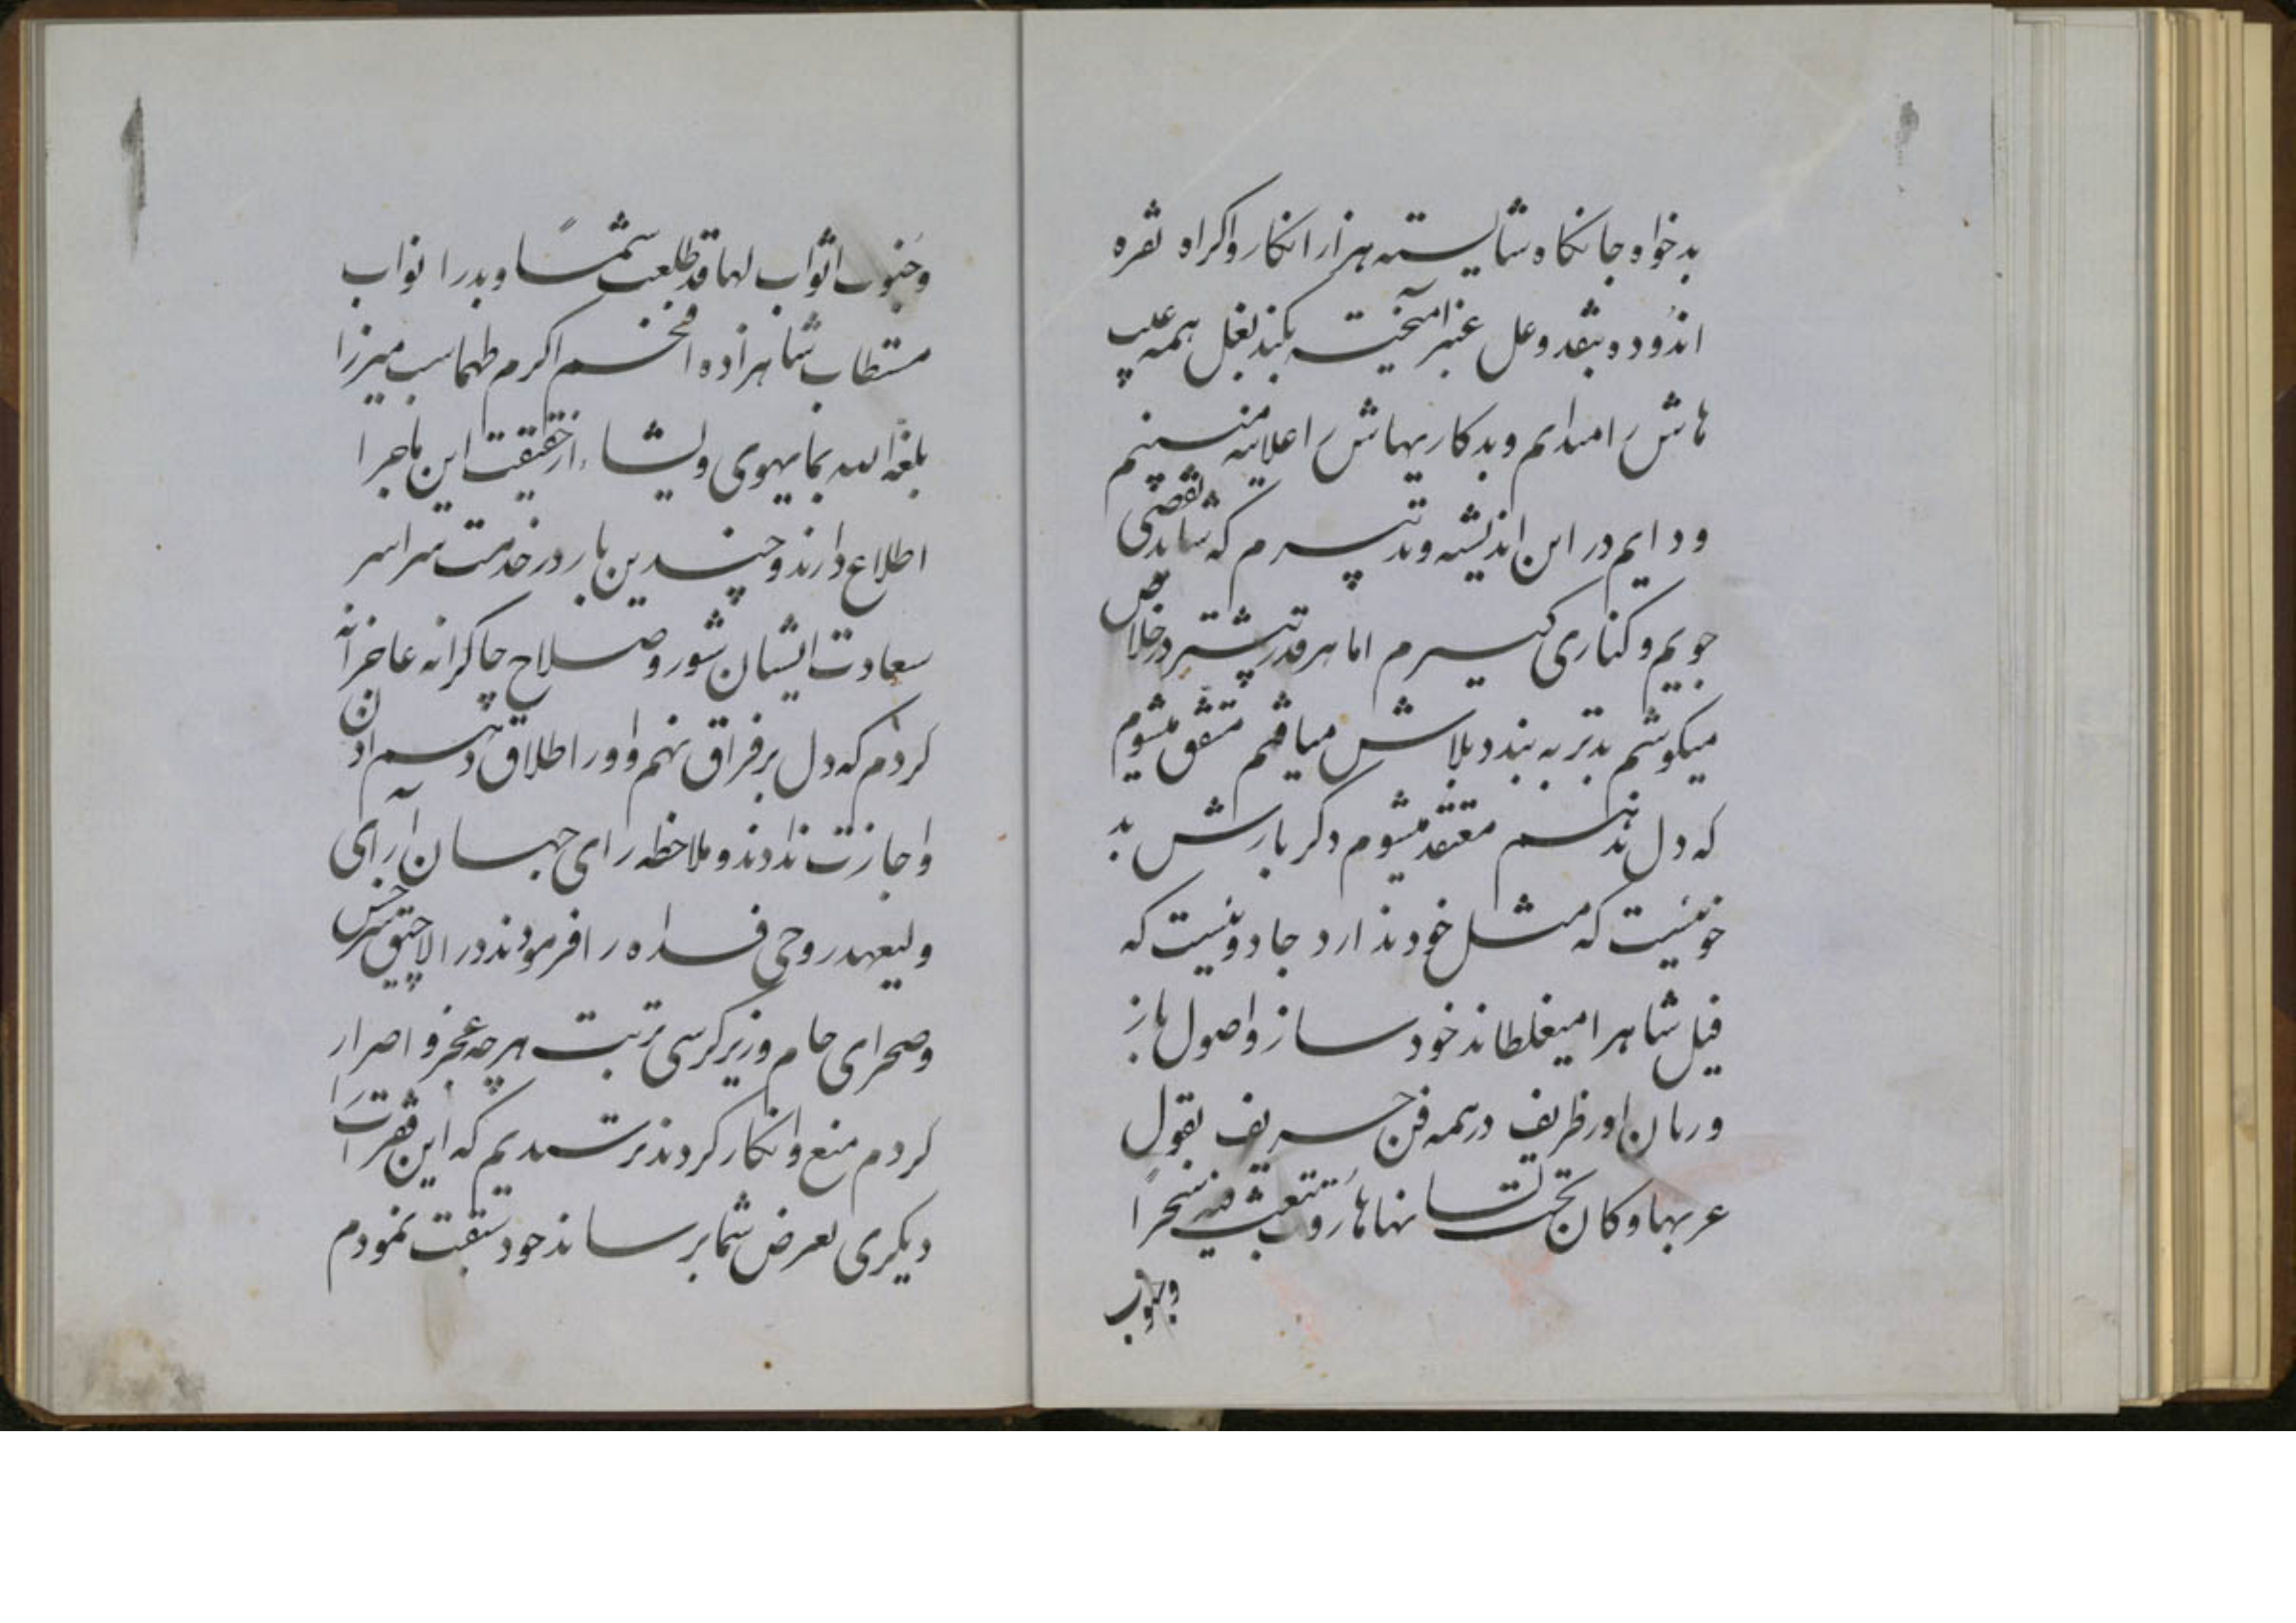 بدخواه جانکاه و شایسته هزار انکار و اکراه نقره
اندوده بنقد و عل عنبر آمیخته بکند بغل همه عیب
هاش را میدانم و بدکاریهاش را علانیه می‌بینم
و دایم در این اندیشه و تدبیرم که شاید تقصی
جویم و کناری گیرم اما هر قدر بیشتر در خلاص
میکوشم بدتر به بند و بلاش میافتم متفق میشوم
که دل ندهم معتقد میشوم دگر بارش بد
خو نیست که مثل خود ندارد جادو نیست که
فیل شاهرا میغلطاند خود ساز و اصول باز
و رمان اور ظریف در همه فن حریف بقول
عربها و کان تحت لسانها هاروت ینفث فیه سحرا
و جنوب
و جنوب اثواب لها قد طلعت شمسا و بدرا نواب
مستطاب شاهزاده افخم اکرم طهماسب میرزا
بلغه الله بما یهوی و یشاء از حقیقت این ماجرا
اطلاع دارند و چندین بار در خدمت سراسر
سعادت ایشان شور و صلاح چاکرانه عاجزانه
کردم که دل بر فراق نهم و او را طلاق دهم اذن
و اجازت ندادند و ملاحظه رای جهان آرای
ولیعهد روحی فداه را فرمودند در الاچیق سرخس
و صحرای جام و زیر کرسی تربت هر چه عجز و اصرار
کردم منع و انکار کردند ترسیدم که این فقرات را
دیکری بعرض شما برساند خود سبقت نمودم